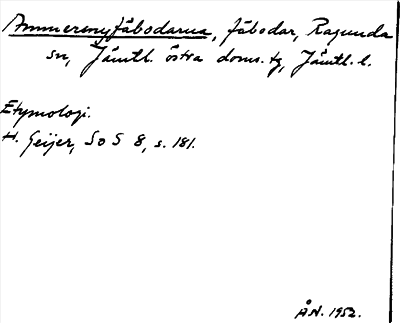 Ammerenyfäbodarna, fäbodar, Ragunda
sn, Jämtl. östra doms. tg, Jämtl. l.
Etymologi.
H. Geijer, SoS 8, s. 181.
Å.N. 1952.